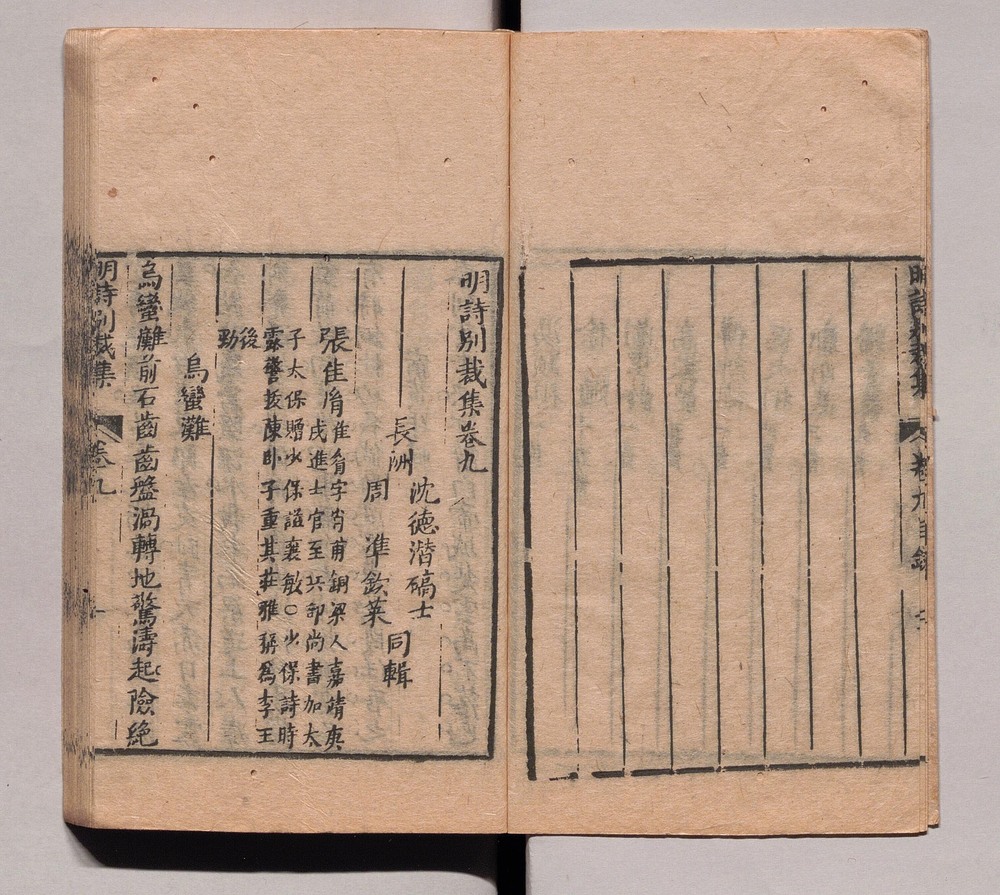 明詩別裁集 卷九目錄
明詩別裁集卷九
沈德潛碻士
長洲 同輯
周準欽萊
張佳胤 佳胤字肖甫銅梁人嘉靖庚
戌進士官至兵部尚書加太
子太保贈少保諡襄敏○少保詩時
露警拔陳卧子重其莊雅稱為李王
後
勁
烏蠻灘
烏蠻灘前石齒齒盤渦轉地驚濤起險絕
明詩別裁集 卷九 一